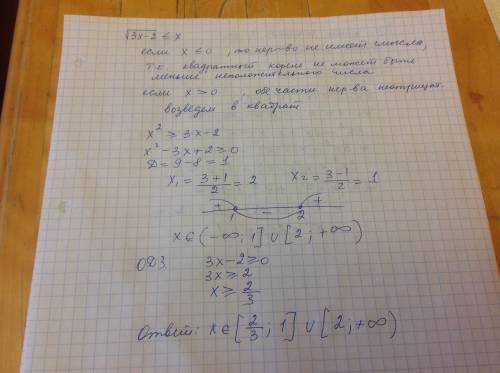 √3x-2 ≤ x
если x ≤ 0, то нер-во не имеет смысла,
т.к квадратный корень не может быть
меньше неположительного числа
если x > 0, обе части нер-ва неотрицат.
возведем в квадрат
x² ≥ 3x-2
x² -3x+2 ≥ 0
D = 9-8 = 1
x₁ = 3+1/2 = 2 x₂ = 3-1/2 = 1
+ - +
1 2
x ∈ (-∞; 1] ∪ [2; +∞)
ОДЗ. 3x-2 ≥ 0
3x ≥ 2
x ≥ 2/3
Ответ: x ∈ [2/3; 1] ∪ [2; +∞)